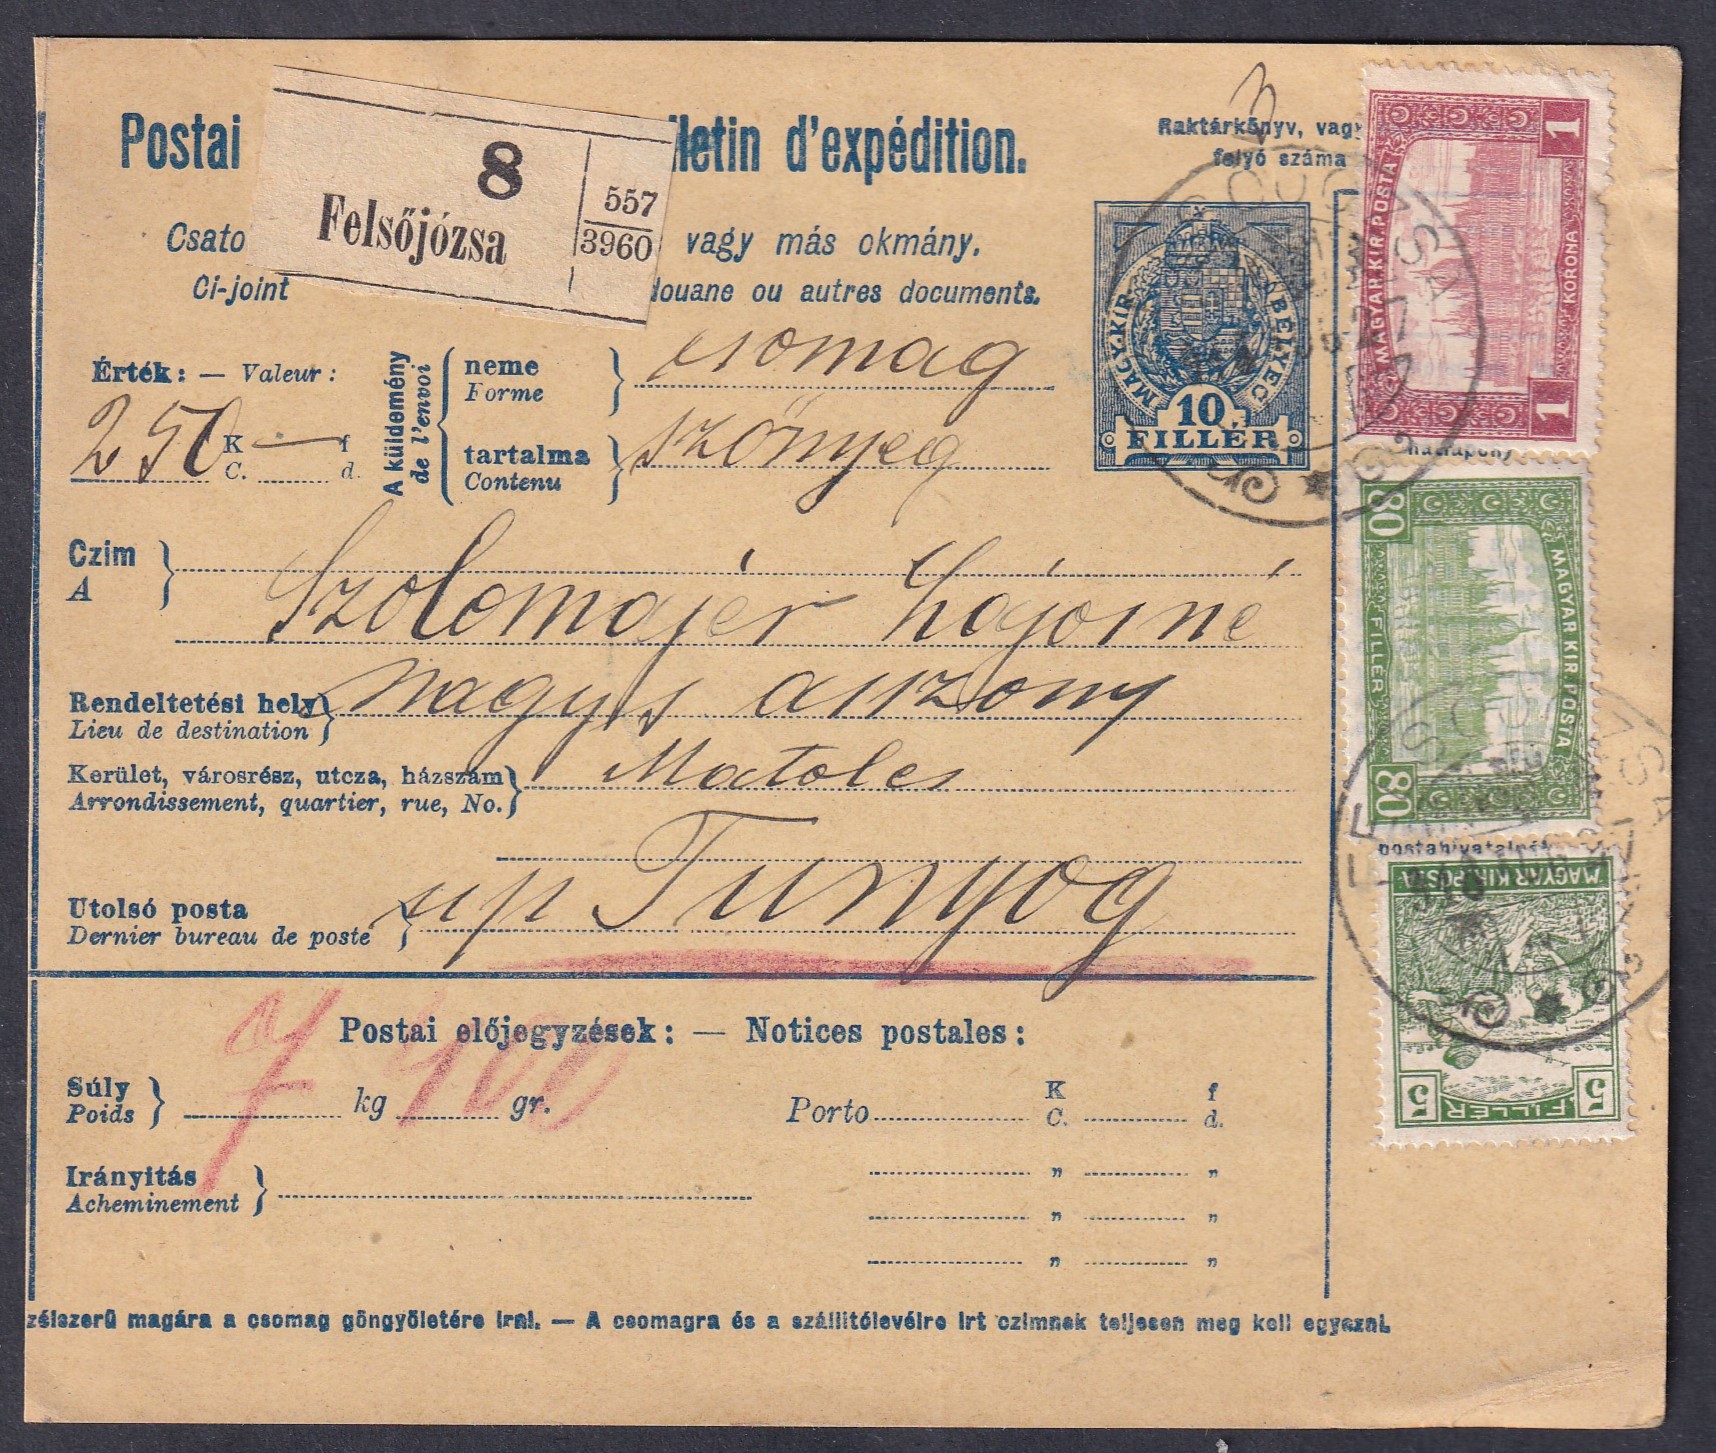 Postai
lletin d'expédition.
8
Felsőjózsa
557
3960
Csato
vagy más okmány.
Ci-joint
douane ou autres documents.
Raktárkönyv, vagy
folyó száma
MAGY. KIR.
BÉLYEG
10
FILLÉR
1
MAGYAR KIR. POSTA
KORONA
1
Érték: — Valeur:
250 K — f
C. d.
A küldemény
de l'envoi
neme
Forme
csomag
tartalma
Contenu
szőnyeg
80
MAGYAR KIR. POSTA
FILLÉR
80
Czim
A
Szolomajér Lajosné
Rendeltetési hely
Lieu de destination
nagys asszony
Kerület, városrész, utcza, házszám
Arrondissement, quartier, rue, No.
Matolcs
Utolsó posta
Dernier bureau de poste
up Tunyog
MAGYAR KIR. POSTA
5 FILLÉR 5
Postai előjegyzések: — Notices postales:
Súly
Poids
7 kg 400 gr.
Porto
K f
C. d.
" "
" "
" "
Irányitás
Acheminement
zélszerű magára a csomag göngyöletére irni. — A csomagra és a szállitólevélre irt czimnek teljesen meg kell egyezni.